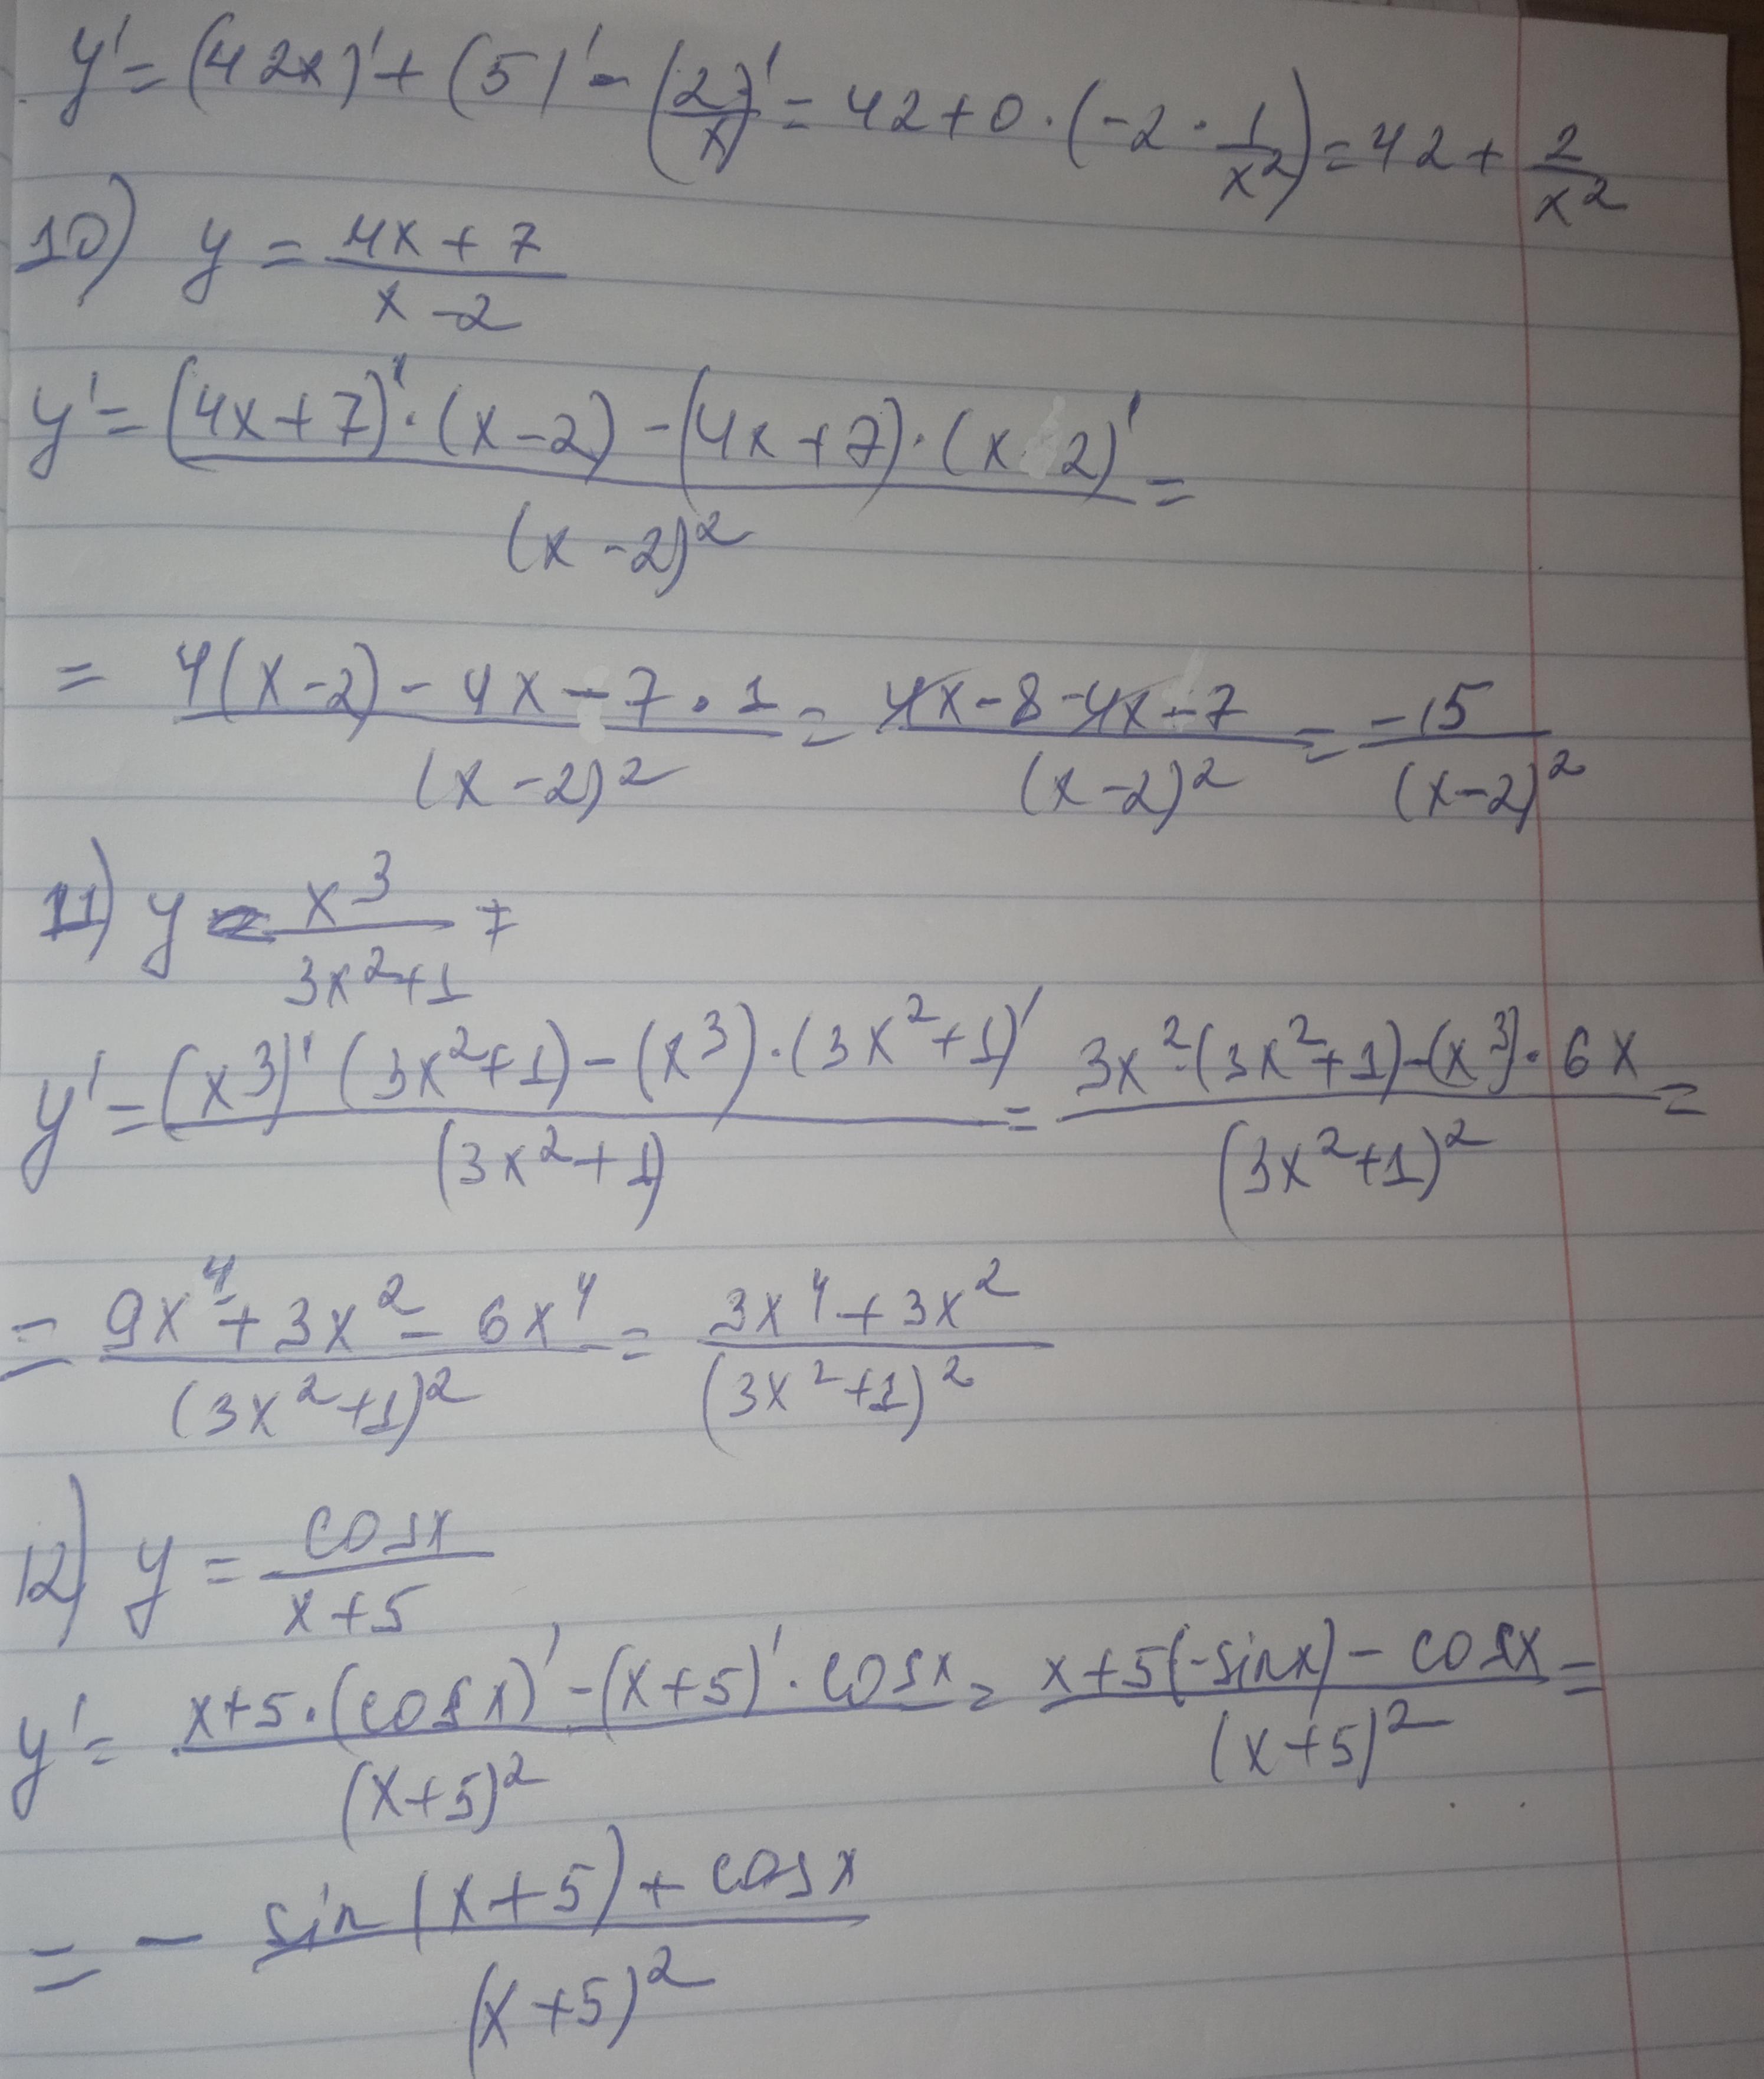 y' = (42x)' + (5)' - (2/x)' = 42 + 0 · (-2 · 1/x²) = 42 + 2/x²
10) y = (4x + 7)/(x - 2)
y' = ((4x + 7)' · (x - 2) - (4x + 7) · (x 2)')/(x - 2)² =
= (4(x - 2) - 4x - 7 · 1)/(x - 2)² = (4x - 8 - 4x - 7)/(x - 2)² = -15/(x - 2)²
11) y = x³/(3x² + 1) =
y' = ((x³)' (3x² + 1) - (x³) · (3x² + 1)')/(3x² + 1) = (3x² · (3x² + 1) - (x³) · 6x)/(3x² + 1)² =
= (9x⁴ + 3x² - 6x⁴)/(3x² + 1)² = (3x⁴ + 3x²)/(3x² + 1)²
12) y = cosx/(x + 5)
y' = (x + 5 · (cosx)' - (x + 5)' · cosx)/(x + 5)² = (x + 5(-sinx) - cosx)/(x + 5)² =
= - (sin(x + 5) + cosx)/(x + 5)²